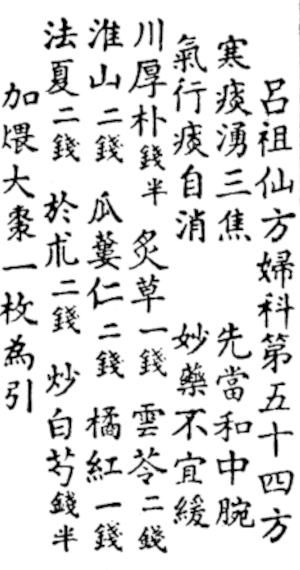 呂祖仙方婦科第五十四方
寒痰湧三焦　先當和中腕
氣行痰自消　妙藥不宜緩
川厚朴錢半　炙草一錢　雲苓二錢
淮山二錢　瓜蔞仁二錢　橘紅一錢
法夏二錢　於朮二錢　炒白芍錢半
加煨大棗一枚為引